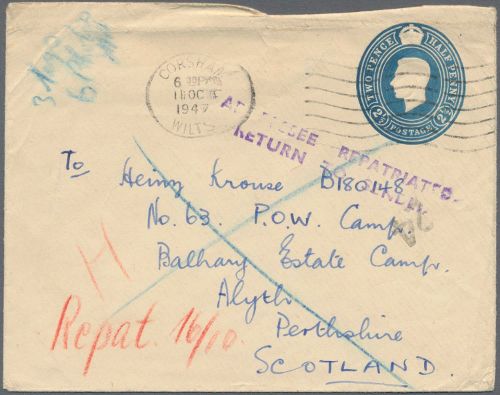 CORSHAM
6 30PM
11 OC
1947
WILTS
TWO PENCE HALF PENNY
2½ POSTAGE 2½
ADDRESSEE REPATRIATED.
RETURN TO SENDER
To
Heinz Krouse B180148
No. 63. P.O.W. Camp.
Balhary Estate Camp.
Alyth
Perthshire
SCOTLAND.
H
Repat. 16/10.